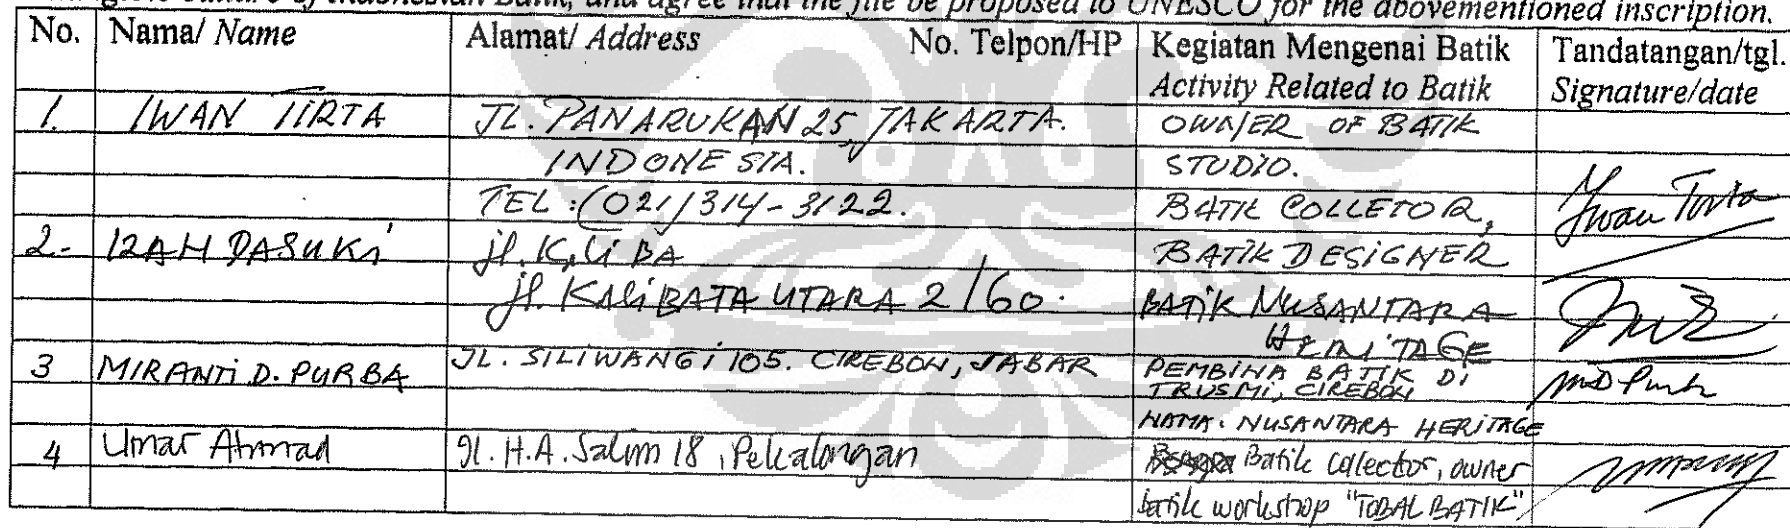 intangible culture of Indonesian Batik, and agree that the file be proposed to UNESCO for the abovementioned inscription.
No. Nama/ Name Alamat/ Address No. Telpon/HP Kegiatan Mengenai Batik Tandatangan/tgl.
Activity Related to Batik Signature/date
1. IWAN TIRTA JL. PANARUKAN 25, JAKARTA. OWNER OF BATIK
INDONESIA. STUDIO.
TEL : (021) 314-3122. BATIK COLLETOR, Iwan Tirta
2- IZAH DASUKI jl. KALIBA BATIK DESIGNER
jl. KALIBATA UTARA 2/60. BATIK NUSANTARA
HERITAGE
3 MIRANTI D. PURBA JL. SILIWANGI 105. CIREBON, JABAR PEMBINA BATIK DI
TRUSMI, CIREBON
NAMA. NUSANTARA HERITAGE
4 Umar Ahmad Jl. H.A. Salim 18, Pekalongan Batik collector, owner
batik workshop "TOBAL BATIK"